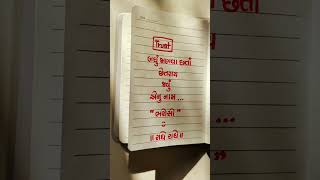 Trust
બધું જાણવા છતાં
છેતરાય
જવું
એનું નામ ...
" ભરોસો "
॥ રાધે રાધે ॥